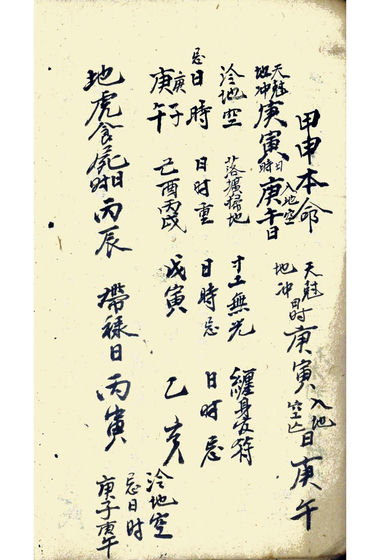 甲申本命
天魁地冲日时庚寅入地空亡日庚午
天魁地冲庚寅日時入地空庚午日
冷地空
落壙掃地
寸土無光
纏身受符
忌日時
日时重
日時忌
日时忌
庚子庚午
己酉丙戌
戊寅
乙亥
地虎食死日时丙辰
帶祿日丙寅
冷地空
忌日时
庚子庚午